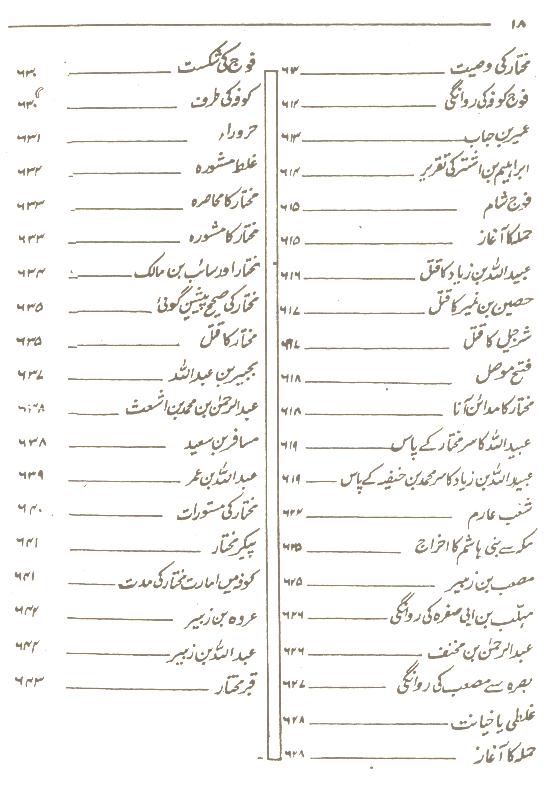 ۱۸
مختار کی وصیت ۶۱۳
فوج کوفہ کی روانگی ۶۱۳
عمیر بن حباب ۶۱۳
ابراہیم بن اشتر کی تقریر ۶۱۴
فوج شام ۶۱۵
حملہ کا آغاز ۶۱۵
عبید اللہ بن زیاد کا قتل ۶۱۶
حصین بن نمیر کا قتل ۶۱۷
شرجیل کا قتل ۶۱۷
فتح موصل ۶۱۸
مختار کا مدائن آنا ۶۱۸
عبید اللہ کا سر مختار کے پاس ۶۱۹
عبید اللہ بن زیاد کا سر محمد بن حنفیہ کے پاس ۶۱۹
شعب عارم ۶۲۲
مکہ سے بنی ہاشم کا اخراج ۶۲۵
مصعب بن زبیر ۶۲۵
مہلب بن ابی صفرہ کی روانگی ۶۲۶
عبد الرحمٰن بن مخنف ۶۲۶
بصرہ سے مصعب کی روانگی ۶۲۷
غلطی یا خیانت ۶۲۸
حملہ کا آغاز ۶۲۸
فوج کی شکست ۶۳۰
کوفہ کی طرف ۶۳۰
حروراء ۶۳۱
غلط مشورہ ۶۳۲
مختار کا محاصرہ ۶۳۳
مختار کا مشورہ ۶۳۳
مختار اور سائب بن مالک ۶۳۴
مختار کی صحیح پیشین گوئی ۶۳۵
مختار کا قتل ۶۳۵
بجیر بن عبد اللہ ۶۳۷
عبد الرحمٰن بن محمد بن اشعث ۶۳۸
مسافر بن سعید ۶۳۸
عبد اللہ بن عمر ۶۳۹
مختار کی مستورات ۶۴۰
پیکر مختار ۶۴۱
کوفہ میں امارت مختار کی مدت ۶۴۱
عروہ بن زبیر ۶۴۲
عبد اللہ بن زبیر ۶۴۲
قبر مختار ۶۴۳